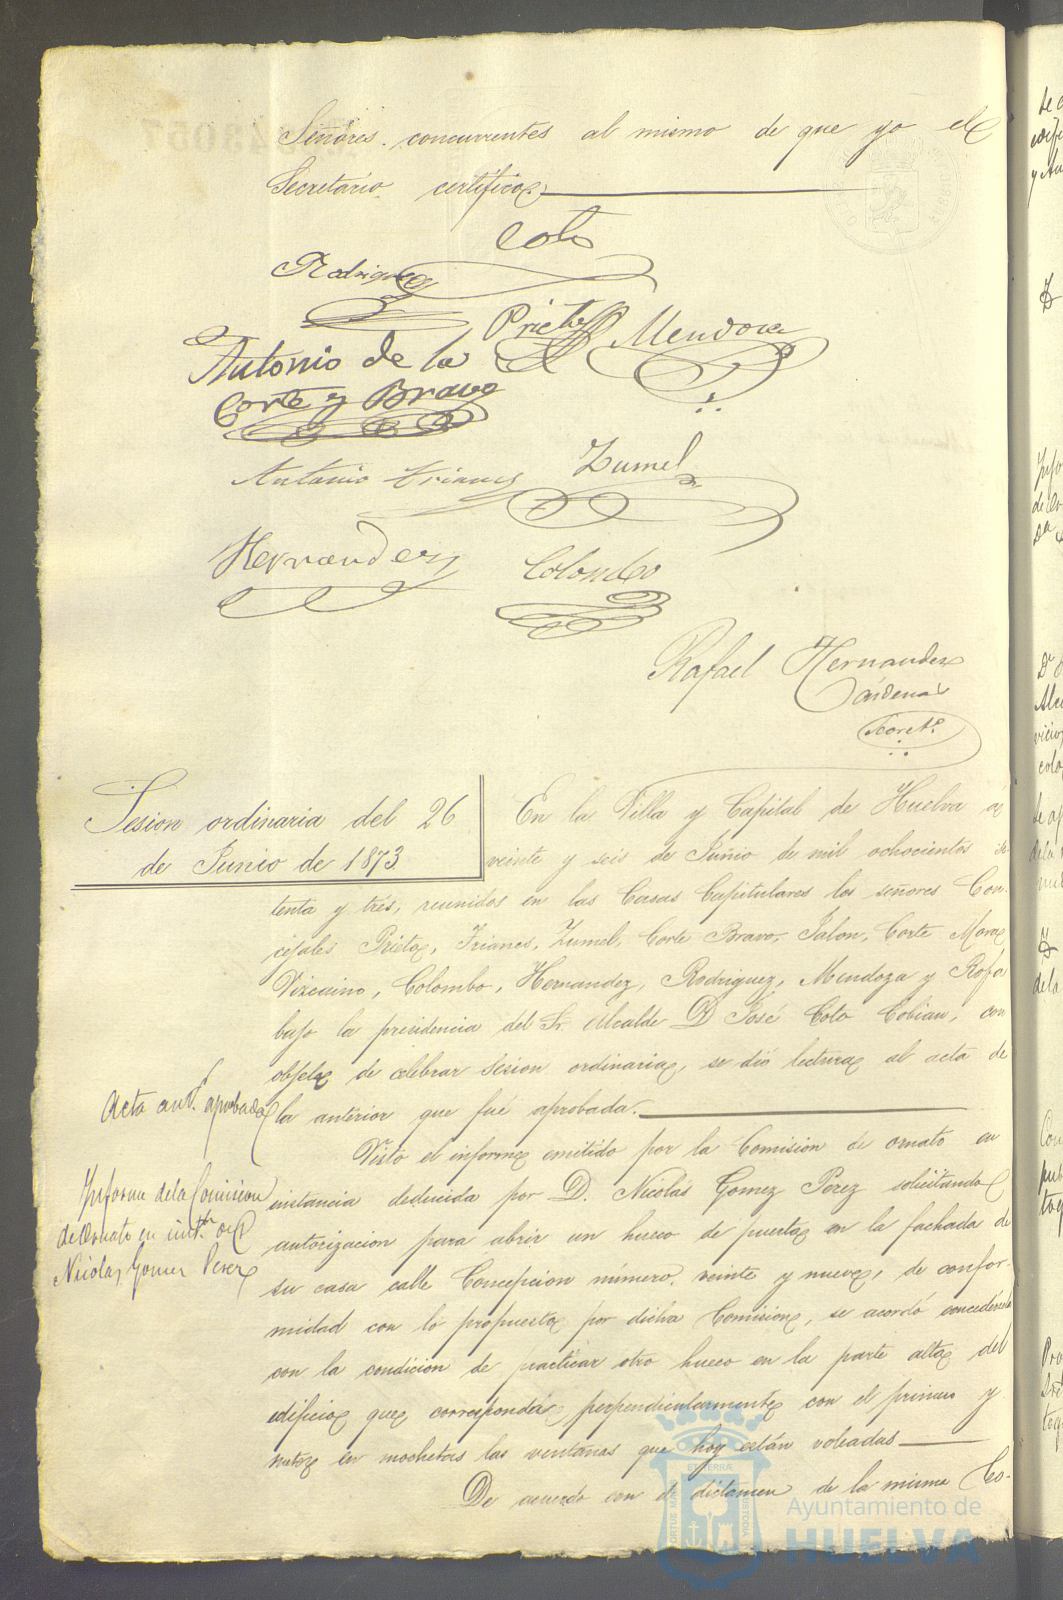 Señores concurrentes al mismo de que yo el
Secretario certifico
Coto
Rodriguez
Prieto Mendoza
Antonio de la
Corte y Bravo
Antonio Trianes Zumel
Hernandez Colombo
Rafael Hernandez
Cárdenas
Secretº
Sesion ordinaria del 26
de Junio de 1873
En la Villa y Capital de Huelva á
veinte y seis de Junio de mil ochocientos se-
tenta y tres, reunidos en las Casas Capitulares los señores Con-
cejales Prieto, Trianes, Zumel, Corte Bravo, Jalon, Corte Mora
Vizcaino, Colombo, Hernandez, Rodriguez, Mendoza y Rofa
bajo la presidencia del Sr. Alcalde D José Coto Cobian, con
objeto de celebrar Sesion ordinaria, se dió lectura al acta de
Acta antr. aprobada
la anterior que fué aprobada.
Visto el informe emitido por la Comision de ornato en
Informe de la Comision
de Ornato en inst.ª de D
Nicolas Gomez Perez
instancia deducida por D. Nicolás Gomez Perez solicitando
autorizacion para abrir un hueco de puerta en la fachada de
su casa calle Concepcion número veinte y nueve, de confor-
midad con lo propuesto por dicha Comision, se acordó concederselo
con la condicion de practicar otro hueco en la parte alta del
edificio que corresponda perpendicularmente con el primero y
meter en mochetas las ventanas que hoy están voleadas
De acuerdo con el dictámen de la misma Co-
Ayuntamiento de
HUELVA